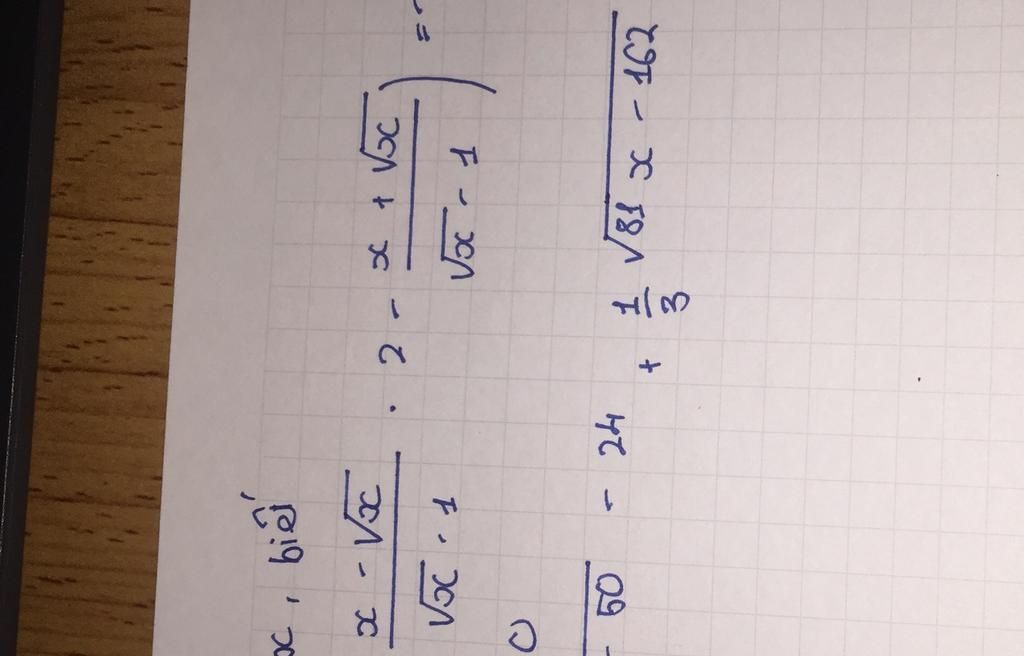 x, biết
x - √x / √x - 1 . 2 - x + √x / √x - 1 ) =
- 50 - 24 + 1/3 √81 x - 162